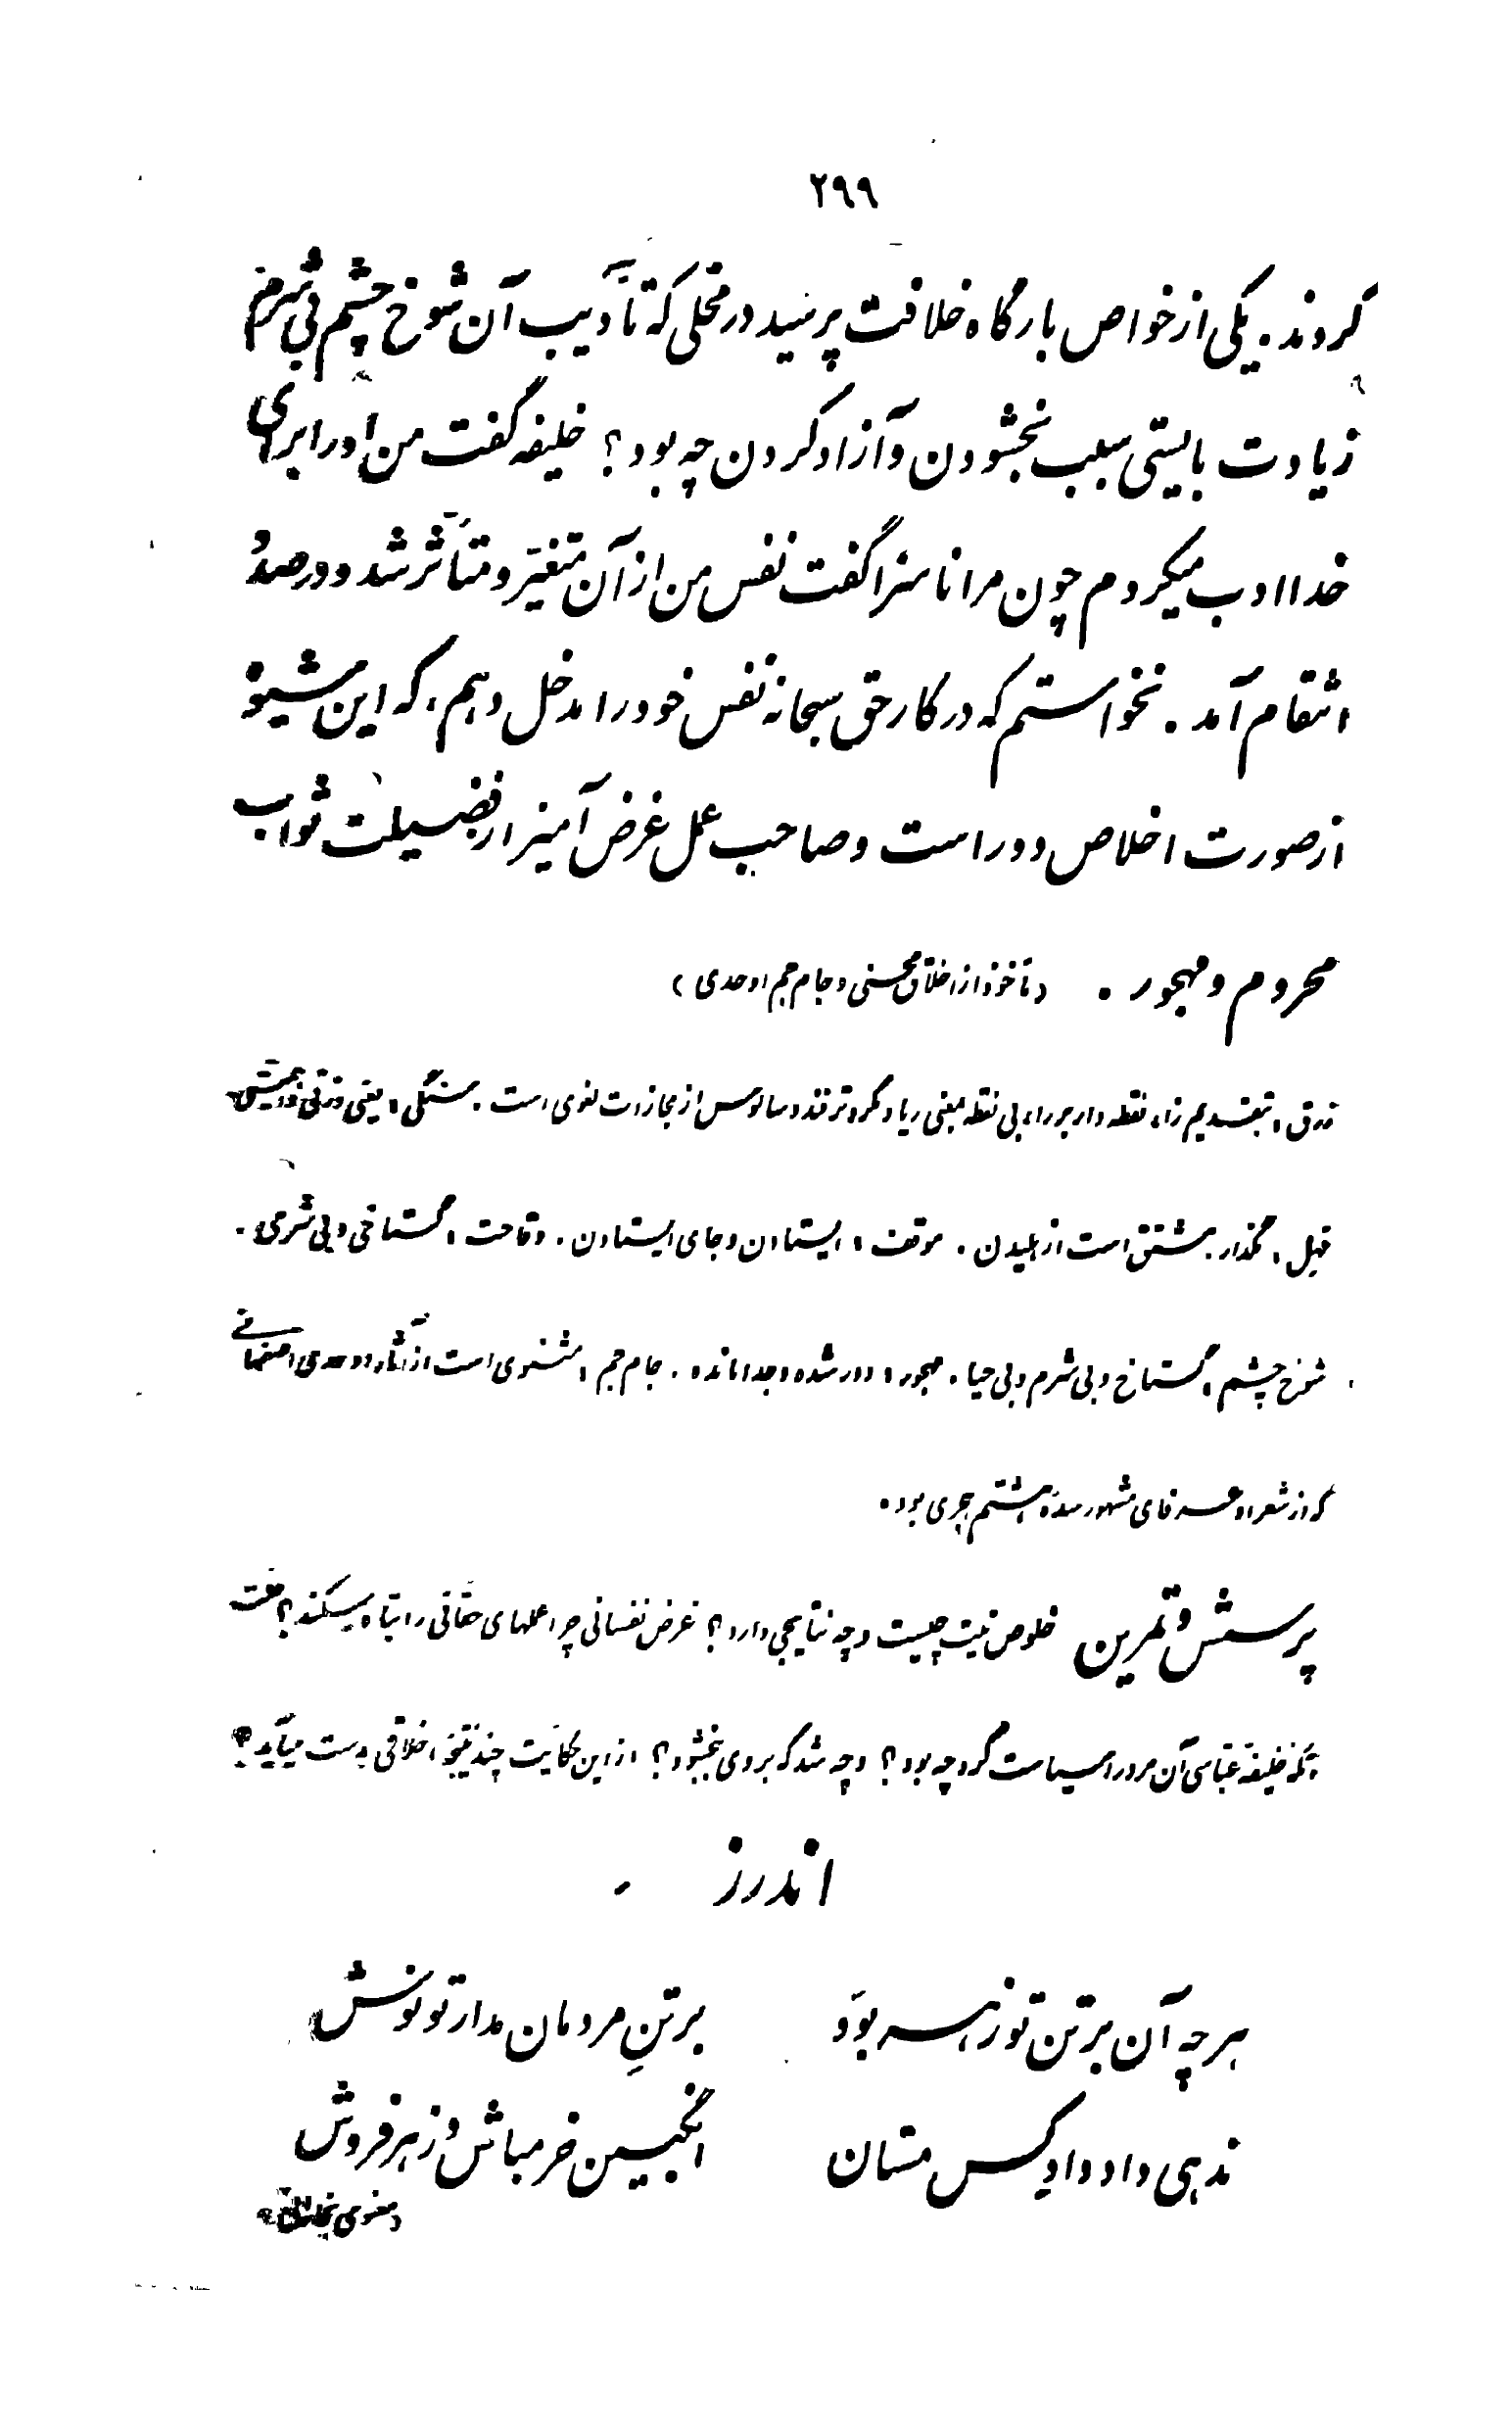 ۲۹۹
کردند. یکی از خواص بارگاه خلافت پرسید در محلی که تأدیب آن شوخ چشم بی شرم
زیادت بایستی سبب بخشودن و آزاد کردن چه بود؟ خلیفه گفت من او را برای
خدا ادب میکردم چون مرا ناسزا گفت نفس من از آن متغیّر و متأثّر شد و در صدد
انتقام آمد. نخواستم که در کار حق سبحانه نفس خود را مدخل دهم، که این شیوه
از صورت اخلاص دور است و صاحب عمل غرض آمیز از فضیلت ثواب
محروم و مهجور. (مأخوذ از اخلاق محسنی و جام جم اوحدی)
زرق، بتقدیم زاء نقطه دار بر راء بی نقطه بمعنی ریا و مکر و تزویر و سالوس از مجازات لغوی است. سنگی، یعنی وزنی
مهل، مگذار. مشتق است از هلیدن. موقف، ایستادن و جای ایستادن. وقاحت، گستاخی و بی شرمی.
شوخ چشم، گستاخ و بی شرم و بی حیا. مهجور، دور شده و جدا مانده. جام جم، مثنوی است از آثار اوحدی اصفهانی
که از شعرا و عرفای مشهور سدهٔ هشتم هجری بود.
پرسش و تمرین خلوص نیّت چیست و چه نتایجی دارد؟ غرض نفسانی چرا عملهای حقّانی را تباه میکند؟ علت
آنکه خلیفهٔ عبّاسی آن مرد را سیاست کرد چه بود؟ و چه شد که بر وی ببخشود؟ از این حکایت چند نتیجهٔ اخلاقی بدست میآید؟
اندرز
هر چه آن بر تن تو زهر بوَد بر تنِ مردمان مدار تو نوش
ندهی داد داد کس مستان انگبین خر مباش و زهر فروش